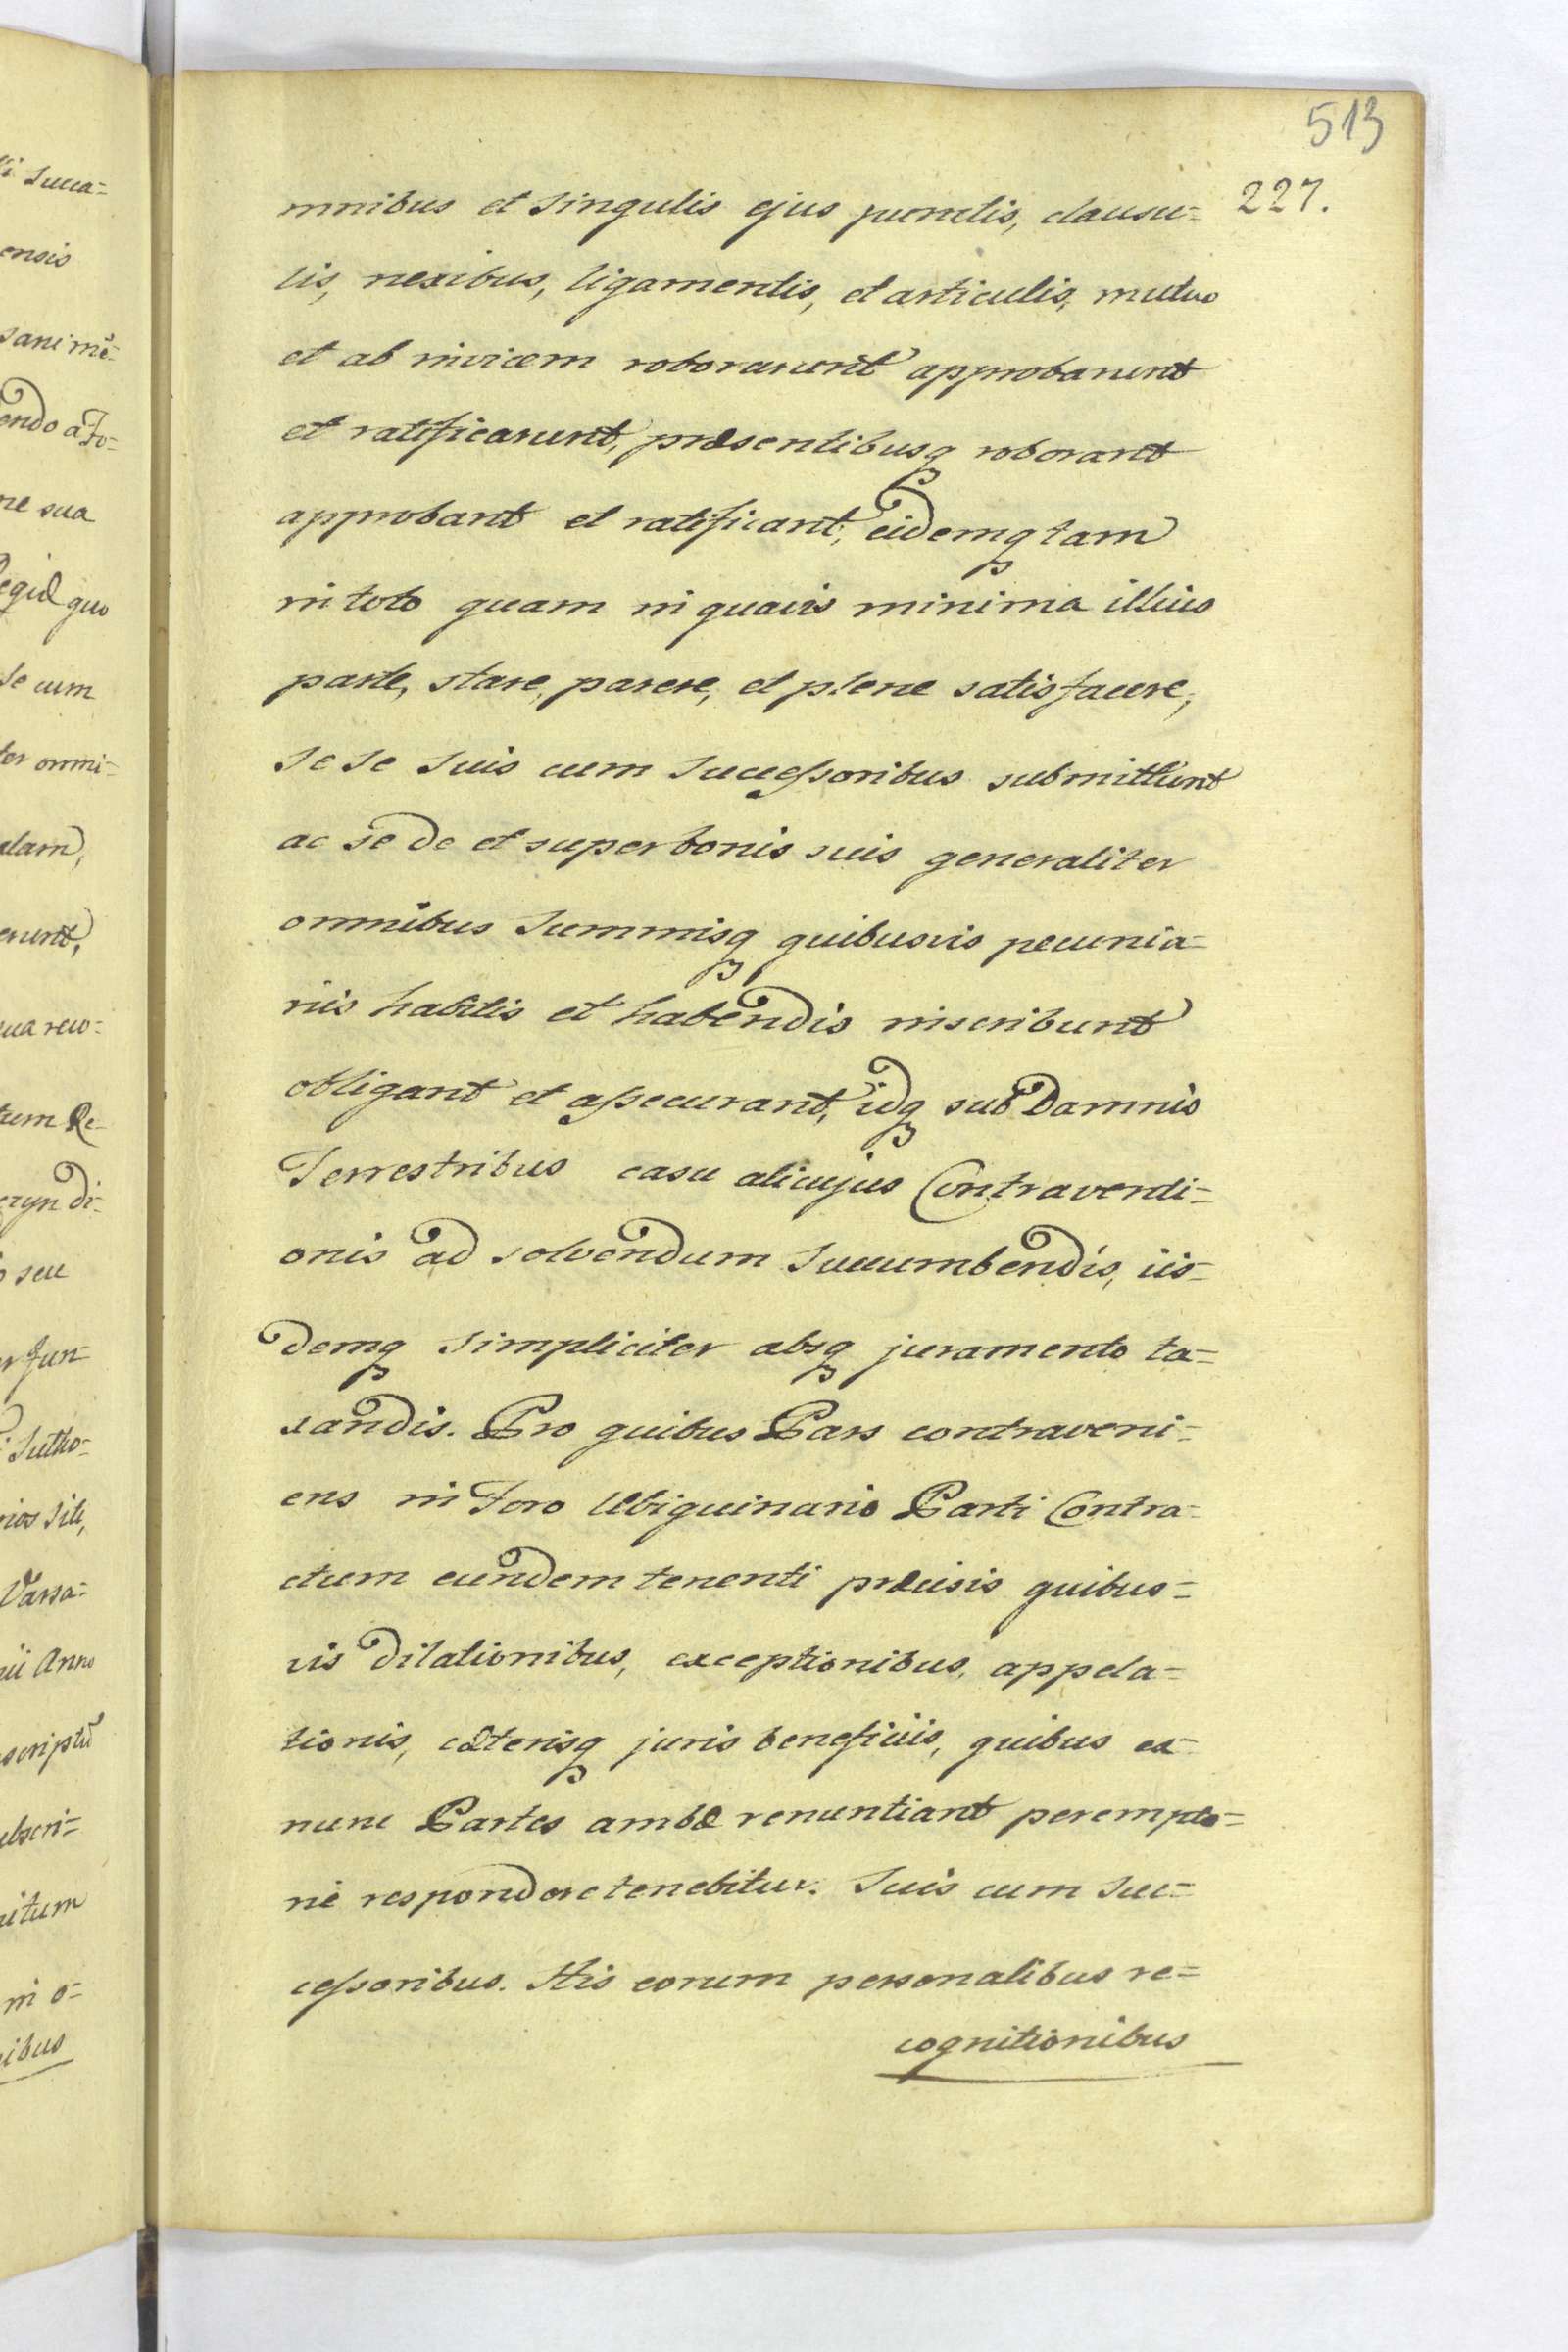 513
227.
mnibus et singulis ejus punctis, clausu=
lis, nexibus, ligamentis, et articulis, mutuo
et ab invicem roborarunt approbarunt
et ratificarunt, præsentibusq roborant
approbant et ratificant, eidemq tam
in toto quam in quavis minima illius
parte, stare, parere, et plene satisfacere,
se se suis cum successoribus submittunt
ac se de et super bonis suis generaliter
omnibus summisq quibusvis pecunia=
riis habitis et habendis inscribunt
obligant et assecurant, idq sub Damnis
Terrestribus casu alicujus Contraventi=
onis ad solvendum succumbendis, iis=
demq simpliciter absq juramento ta=
xandis. Pro quibus Pars contraveni=
ens in Foro Ubiquinario Parti Contra=
ctum eundem tenenti præcisis quibus=
vis dilationibus, exceptionibus, appela=
tionis, cæterisq juris beneficiis, quibus ex=
nunc Partes ambæ renuntiant perempto=
rie respondere tenebitur. Suis cum suc=
cessoribus. His eorum personalibus re=
cognitionibus
succa=
ensis
sani me=
endo a Fo=
ne sua
quo
se cum
ter omni=
erunt,
tum Re=
di=
seu
Jun=
Varsa=
Anno
scriptu
in o=
ibus